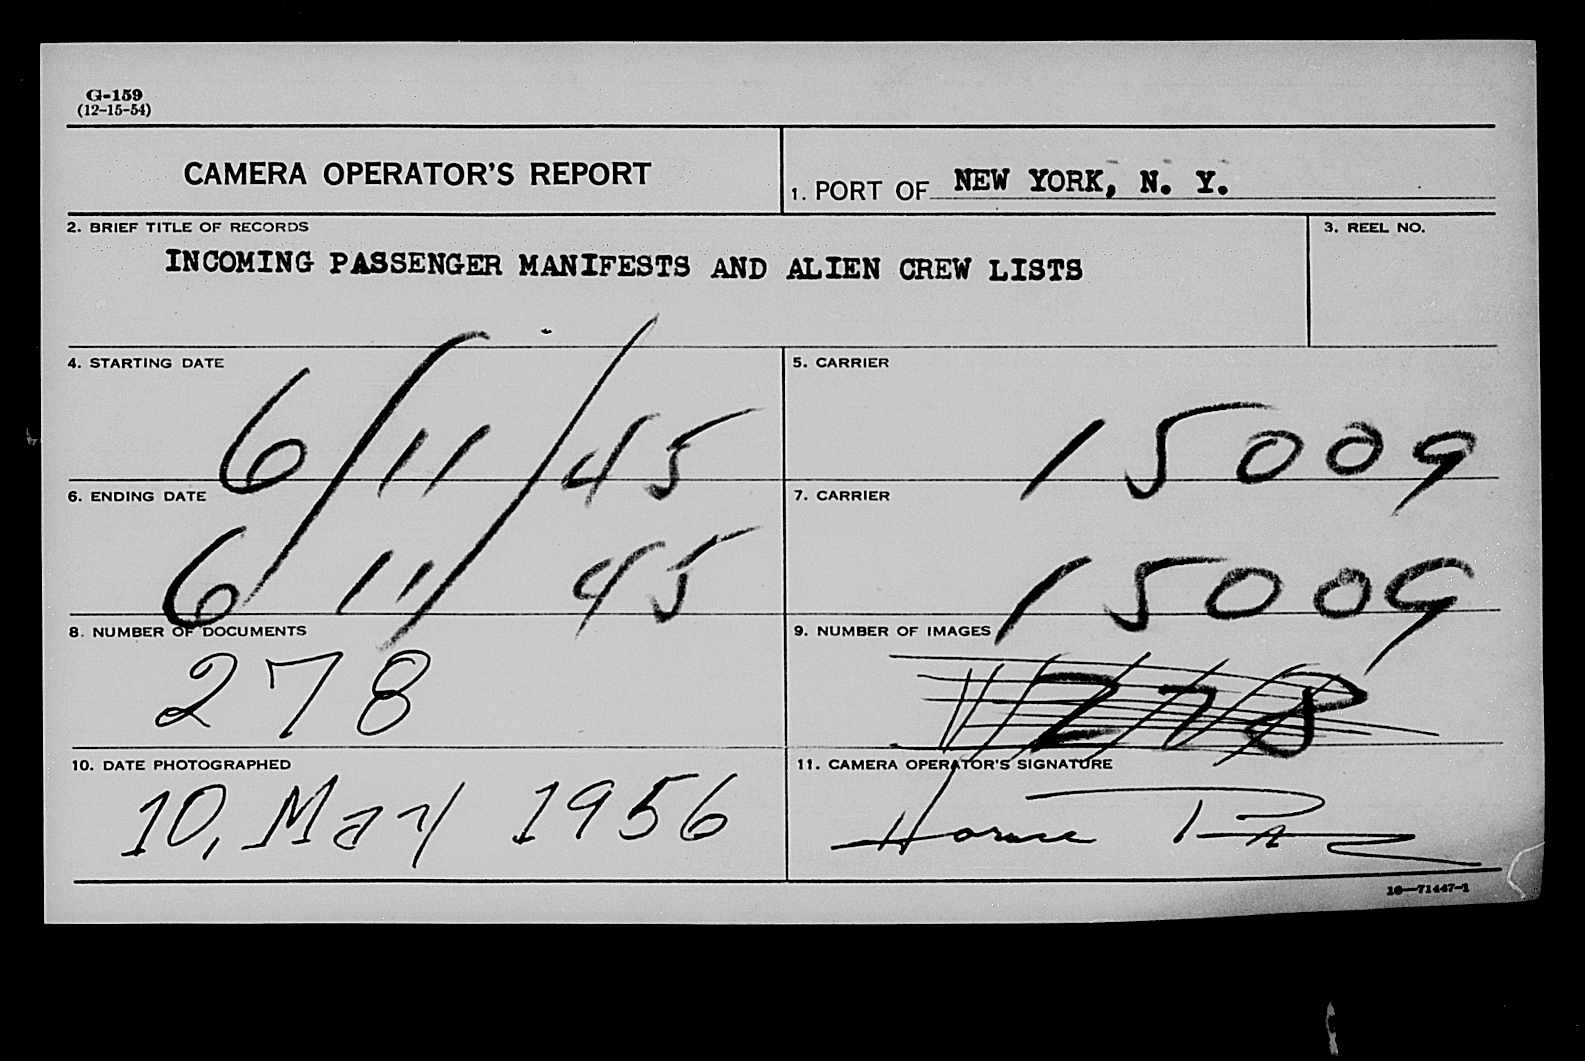 G-159
(12-15-54)
CAMERA OPERATOR'S REPORT
1. PORT OF NEW YORK, N. Y.
2. BRIEF TITLE OF RECORDS
INCOMING PASSENGER MANIFESTS AND ALIEN CREW LISTS
3. REEL NO.
4. STARTING DATE
6/11/45
5. CARRIER
15009
6. ENDING DATE
6/11/45
7. CARRIER
15009
8. NUMBER OF DOCUMENTS
278
9. NUMBER OF IMAGES
278
10. DATE PHOTOGRAPHED
10, May 1956
11. CAMERA OPERATOR'S SIGNATURE
16—71447-1